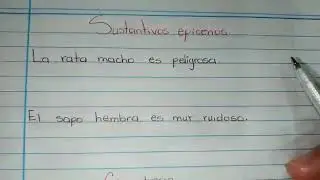 Sustantivos epicenos
La rata macho es peligrosa.
El sapo hembra es muy ruidoso.